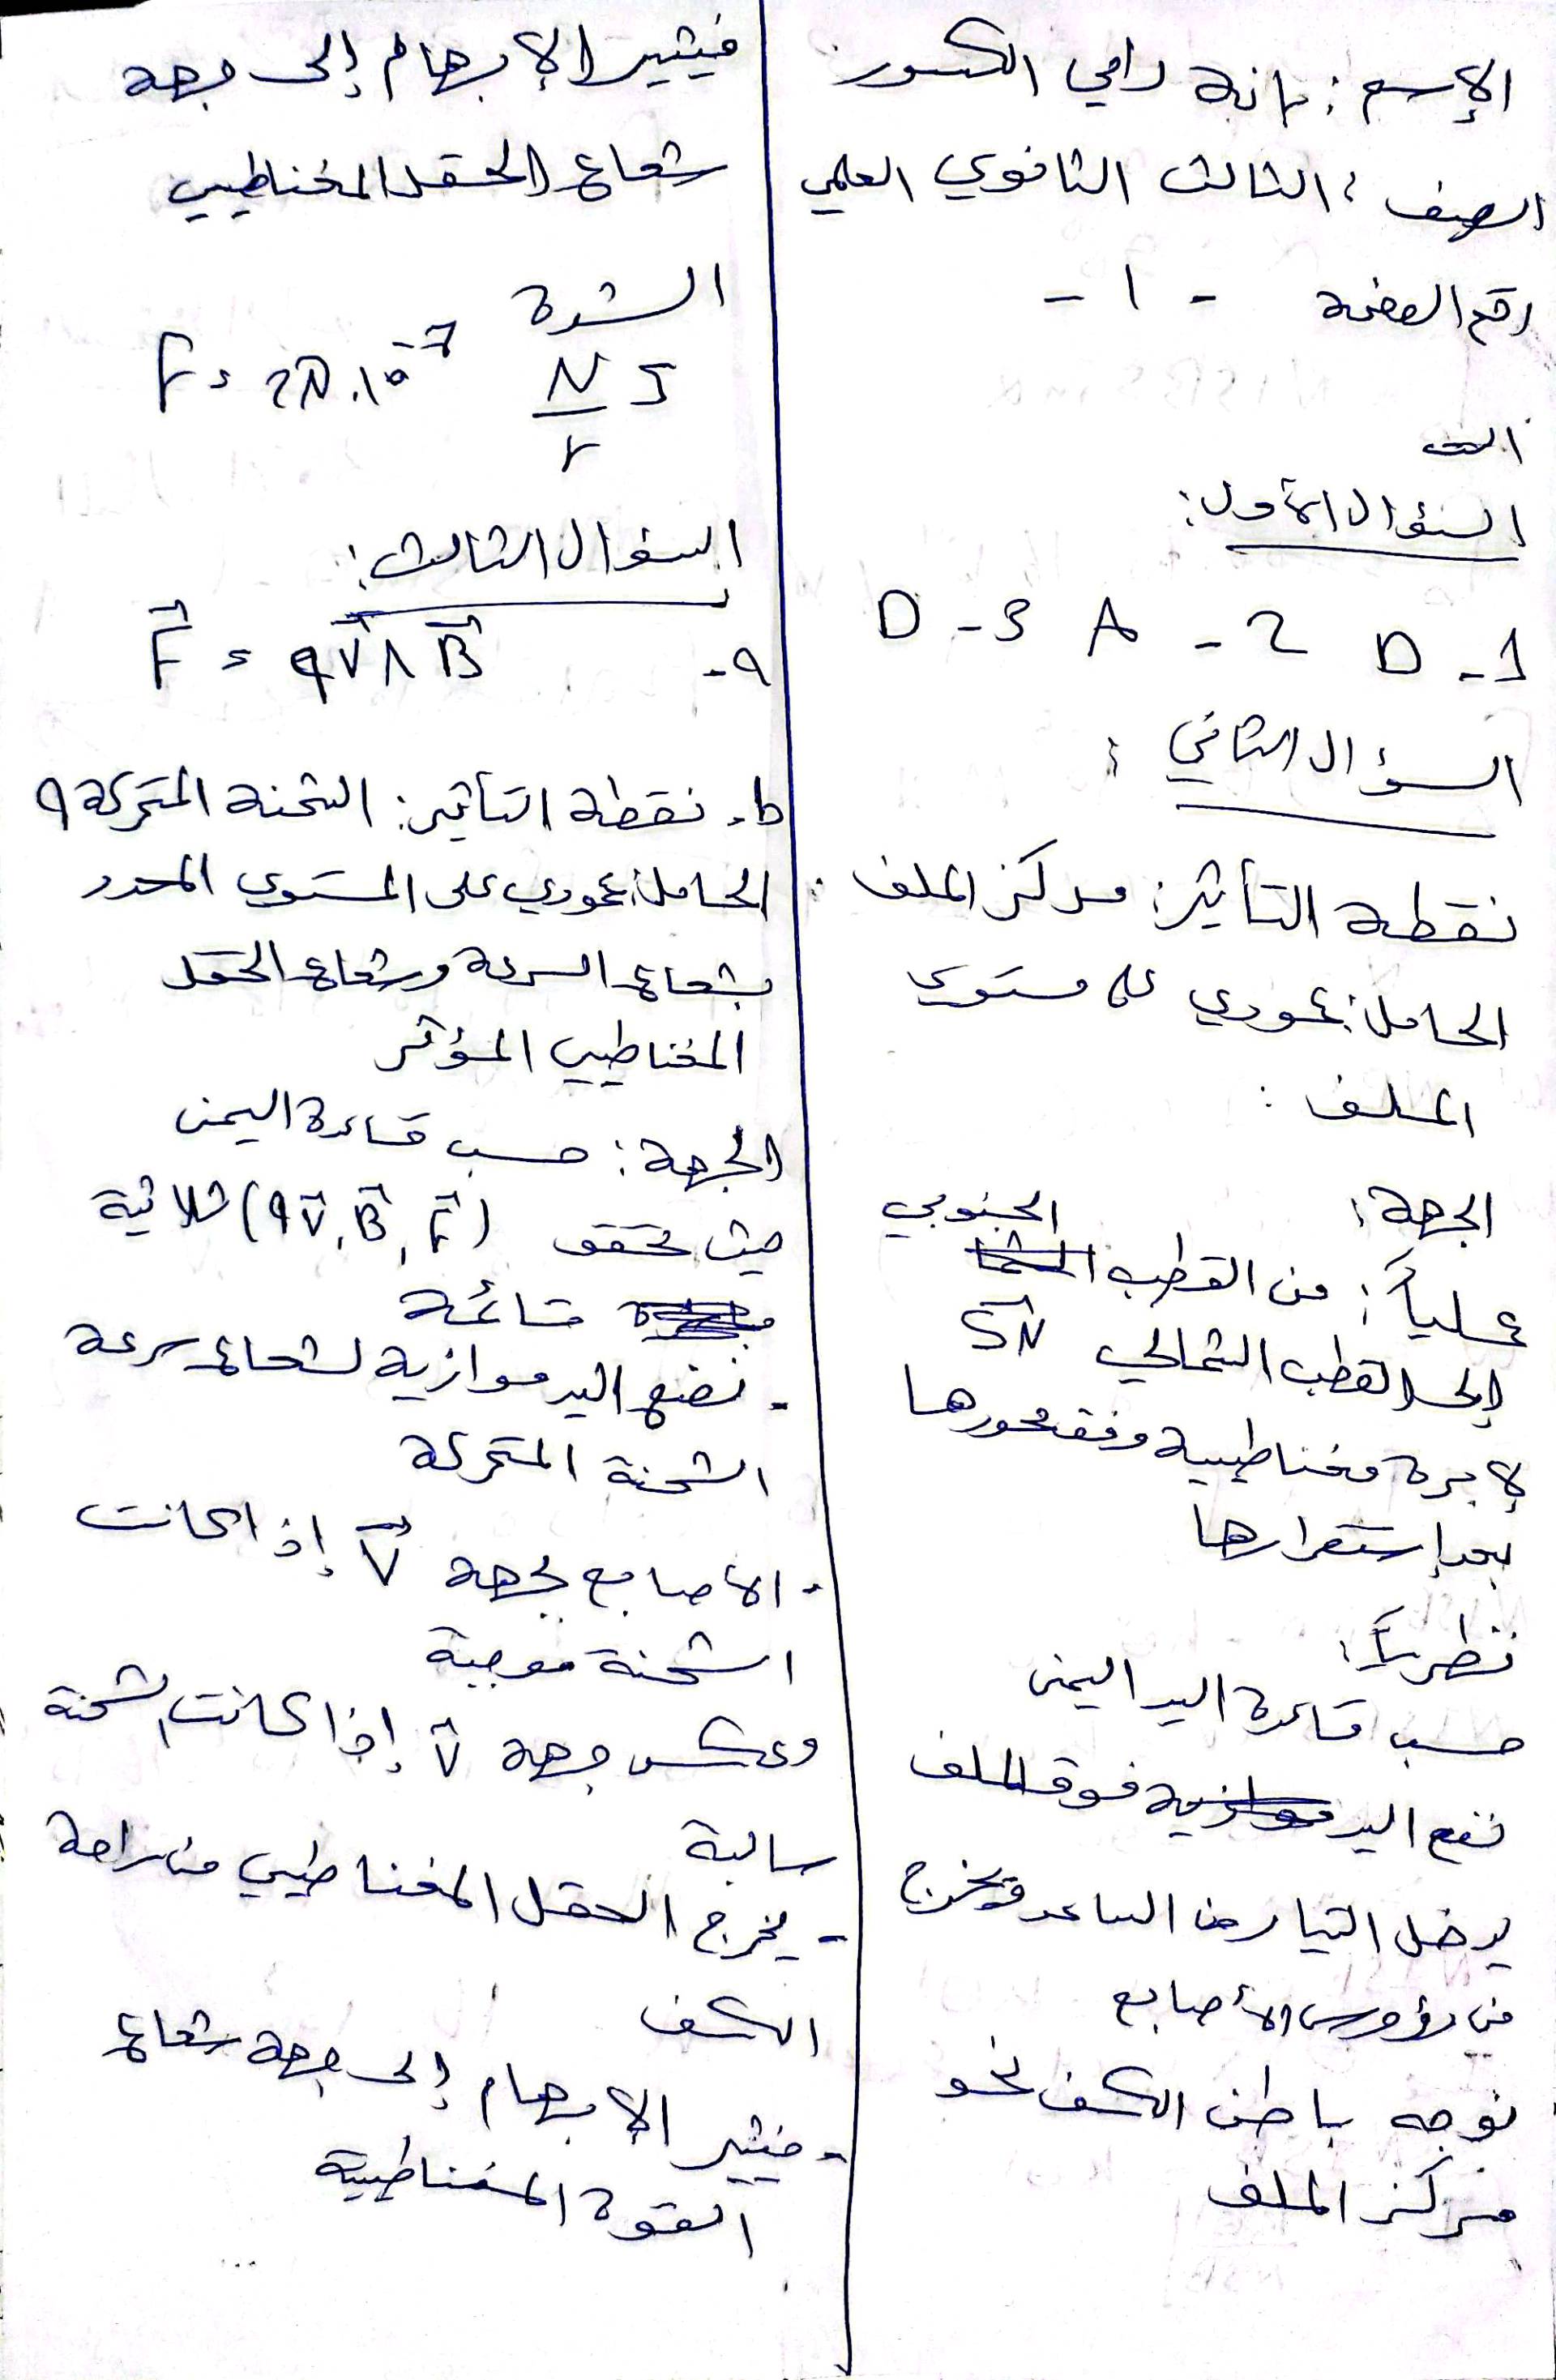 الإسم: دانة رامي الكسور
الصف: الثالث الثانوي العلمي
رقم الصفحة - 1 -
الت
السؤال الأول:
1- D 2- A 3- D
السؤال الثاني:
نقطة التأثير: مركز الملف.
الحامل: عمودي على مستوي
الملف:
الجهة:
عملياً: من القطب الشما الجنوبي
إلى القطب الشمالي SN
لإبرة مغناطيسية وفق محورها
بعد إستقرارها
نظرياً:
حسب قاعدة اليد اليمنى
نضع اليد موازية فوق الملف
يدخل التيار من الساعد ويخرج
من رؤوس الأصابع
نوجه باطن الكف نحو
مركز الملف
فيشير الإبهام إلى جهة
شعاع الحقل المغناطيسي
الشدة
F = 2π.10⁻⁷ N/r I
السؤال الثالث:
a- F = qV Λ B
b- نقطة التأثير: الشحنة المتحركة q
الحامل: عمودي على المستوي المحدد
بشعاع السرعة وشعاع الحقل
المغناطيسي المؤثر
الجهة: حسب قاعدة اليمنى
حيث تحقق (qV, B, F) ثلاثية
قائمة
- نضع اليد موازية لشعاع سرعة
الشحنة المتحركة
- الأصابع بجهة V إذا كانت
الشحنة موجبة
وعكس جهة V إذا كانت الشحنة
سالبة
- يخرج الحقل المغناطيسي من راحة
الكف
- فيشير الإبهام إلى جهة شعاع
القوة المغناطيسية
...